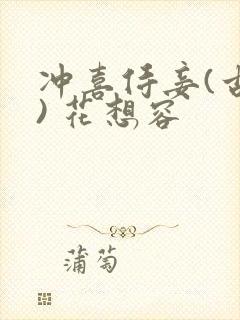 冲喜侍妾(
) 花想容
蒲萄